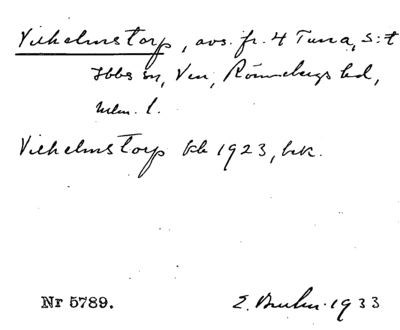 Vilhelmstorp, avs. fr. 4 Tuna, S:t
Ibbs sn, Ven, Rönnebergs hd,
Mlm. l.
Vilhelmstorp kb 1923, hk.
Nr 5789. E. Bruhn. 1933